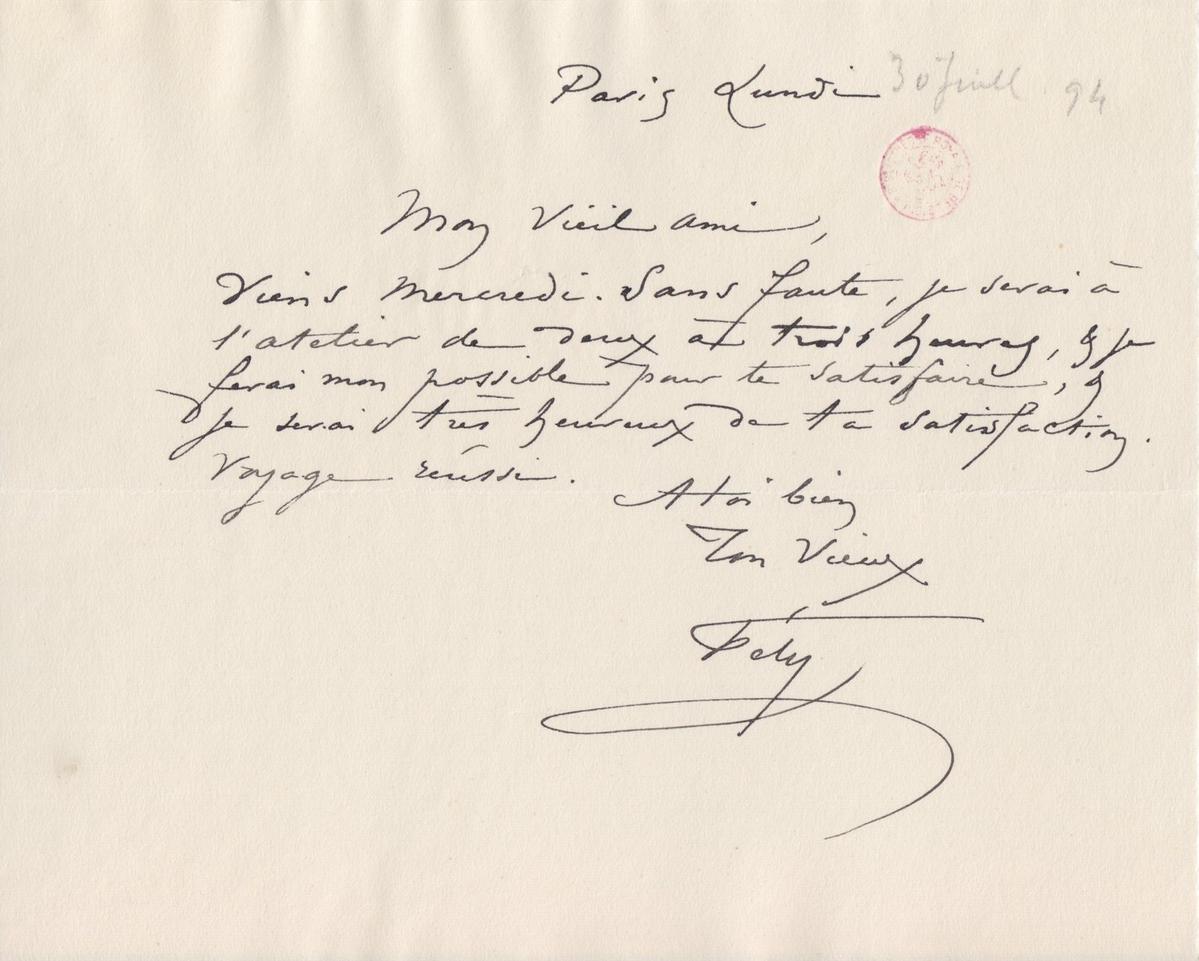 Paris Lundi 30 Juill 94
Mon Vieil ami,
Viens Mercredi. Sans faute, je serai à
l'atelier de deux à trois heures, & je
ferai mon possible pour te satisfaire, &
je serai très heureux de ta satisfaction.
Voyage réussi.
A toi bien
Ton Vieux
Fély